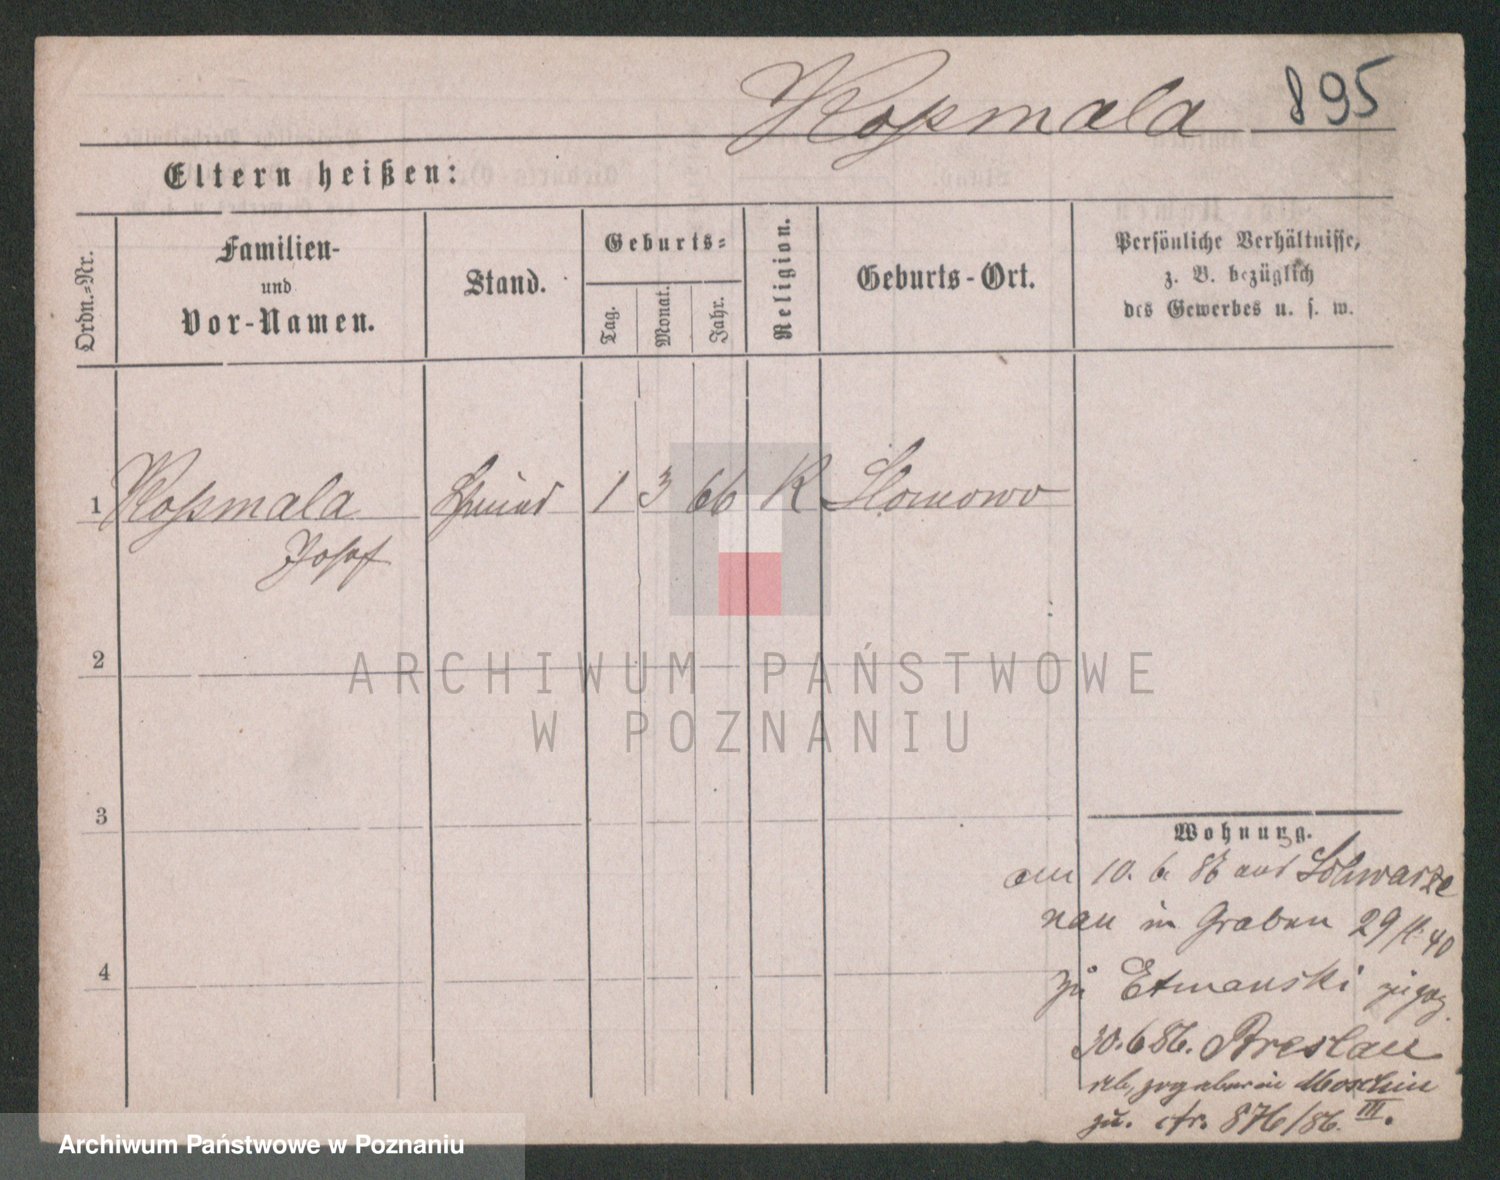 Koßmala 895
Eltern heißen:
Ordn.-Nr.
Familien-
und
Vor-Namen.
Stand.
Geburts-
Tag.
Monat.
Jahr.
Religion.
Geburts-Ort.
Persönliche Verhältnisse,
z. B. bezüglich
des Gewerbes u. s. w.
1 Koßmala 1 3 66 K Slomowo
Josef
2
ARCHIWUM PAŃSTWOWE
W POZNANIU
3
4
Wohnung.
am 10. 6. 86 aus Schwarze
nau in Graben 29
zu Etmanski zugez.
30.6 86. Breslau
Moschin
zu. 876/86. III.
Archiwum Państwowe w Poznaniu